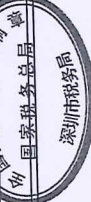 全
章
国家税务总局
深圳市税务局